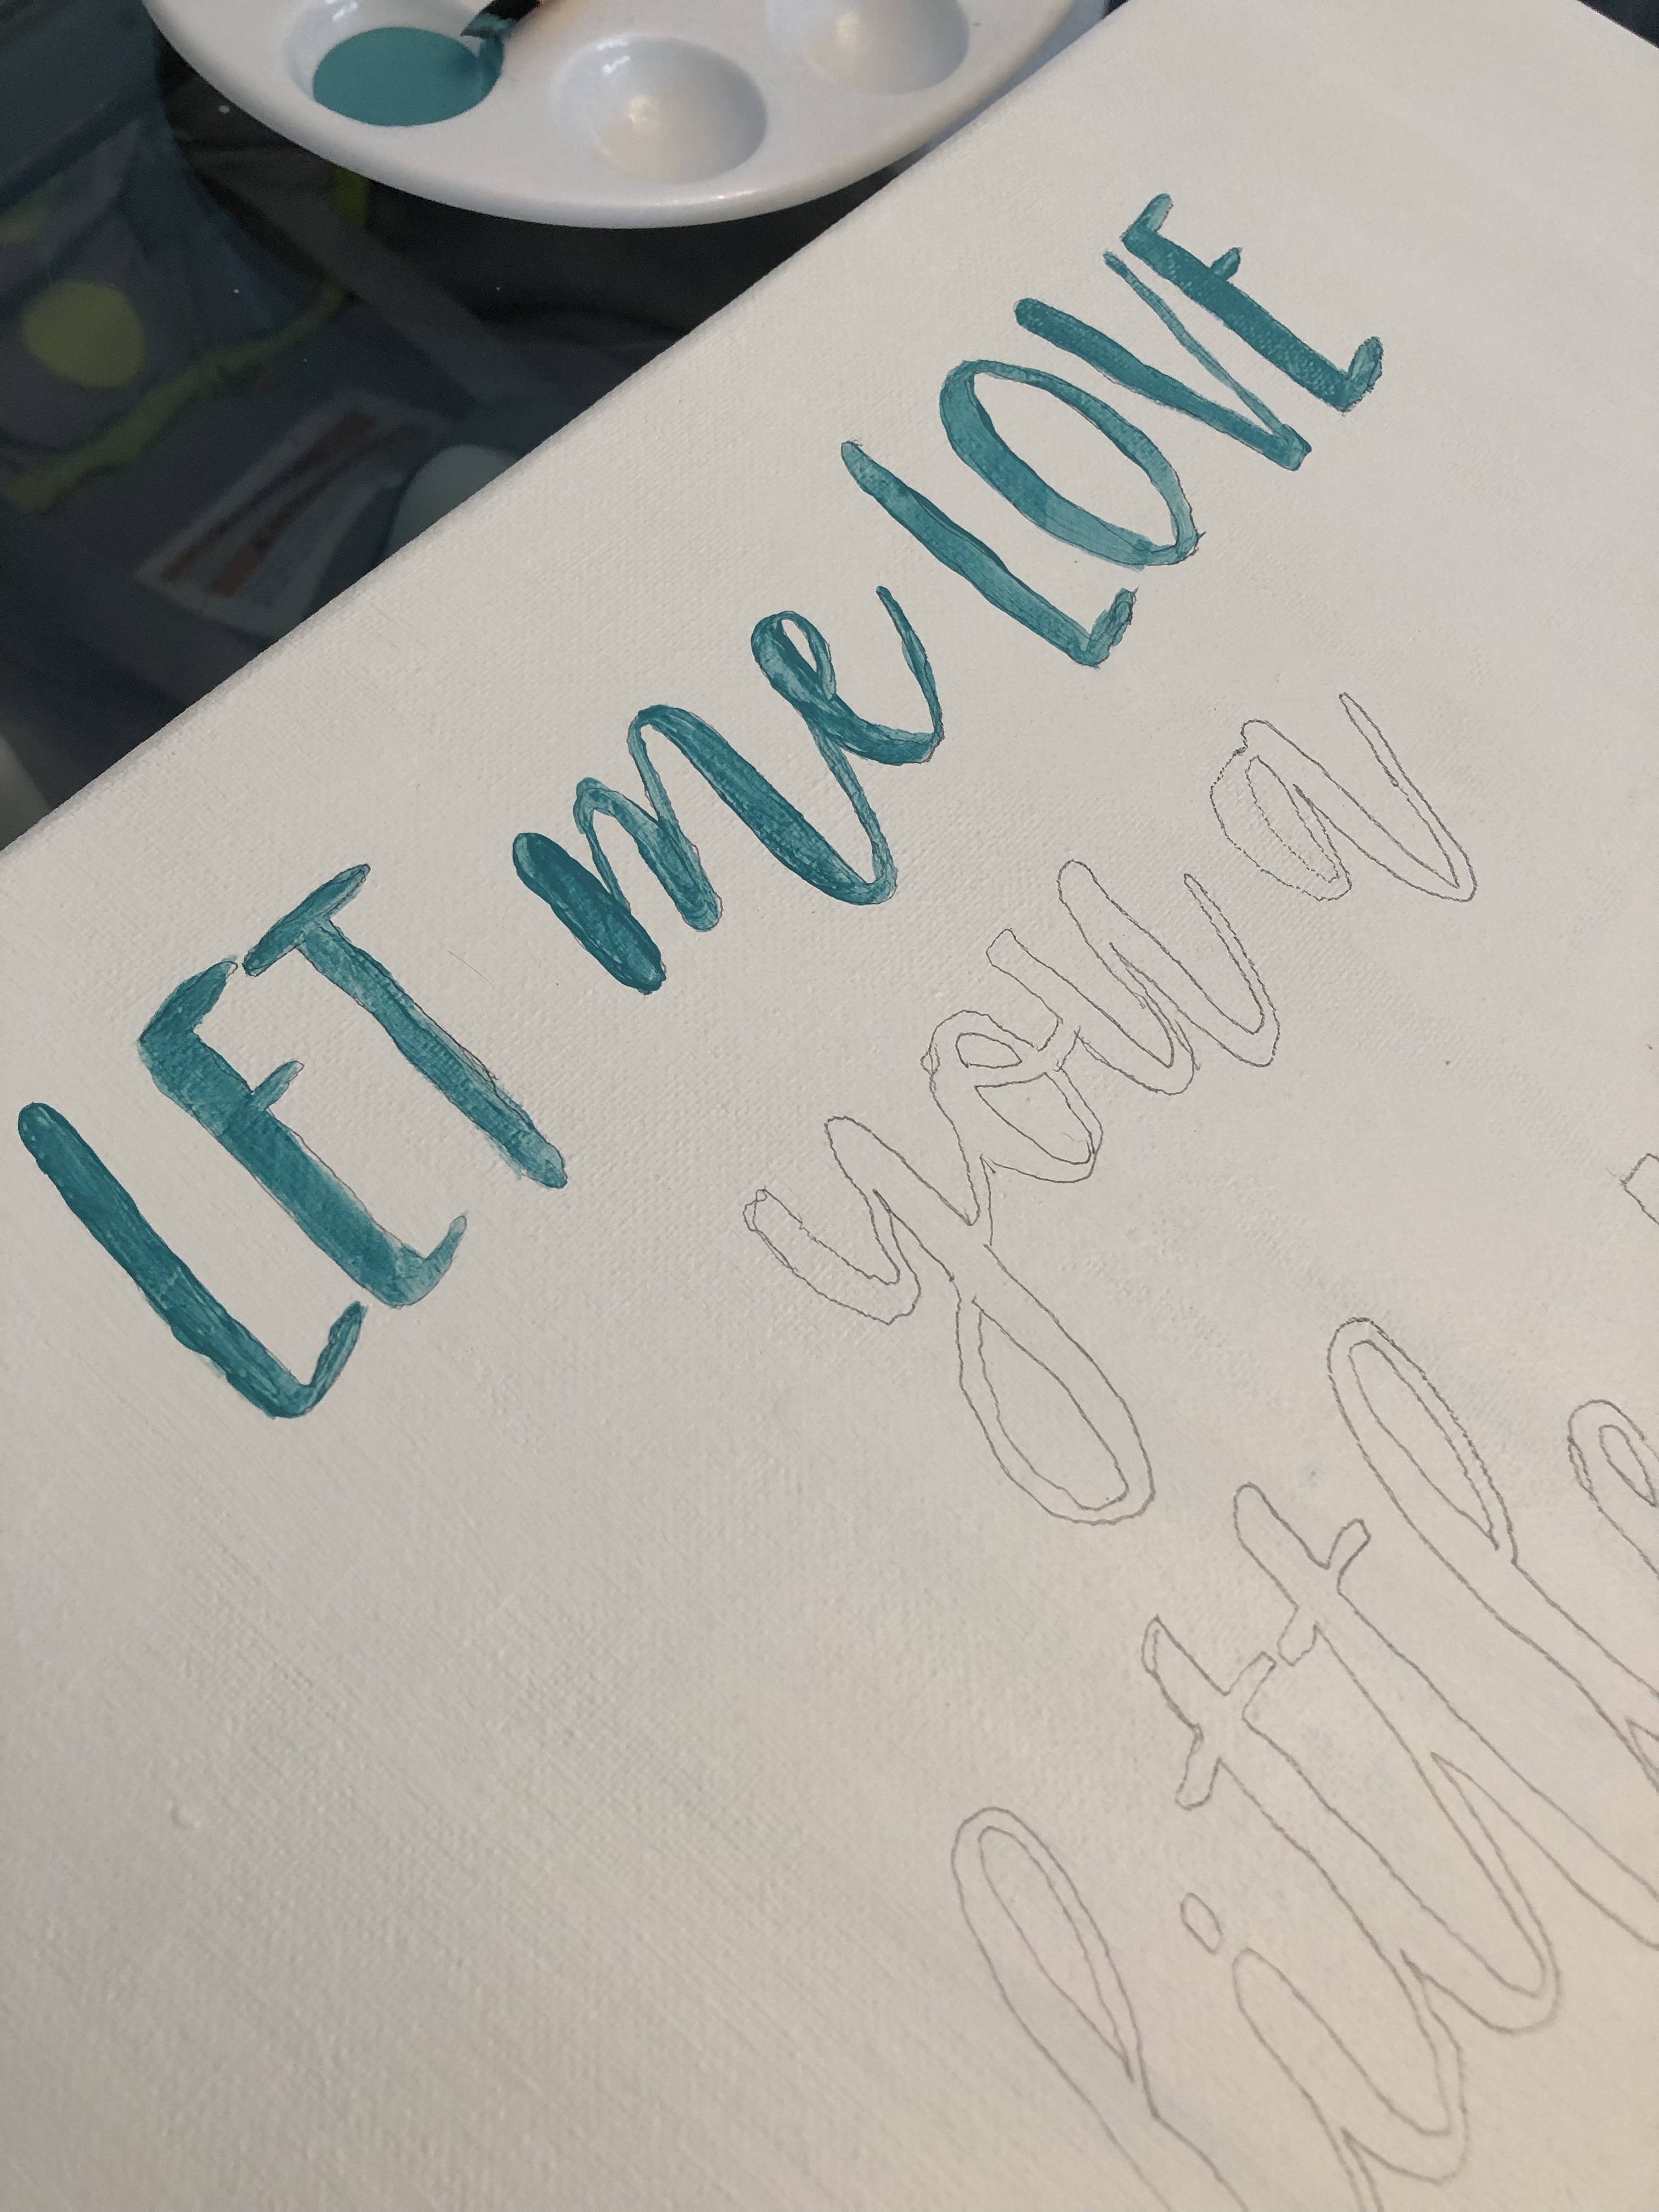 LET me LOVE
you a
little